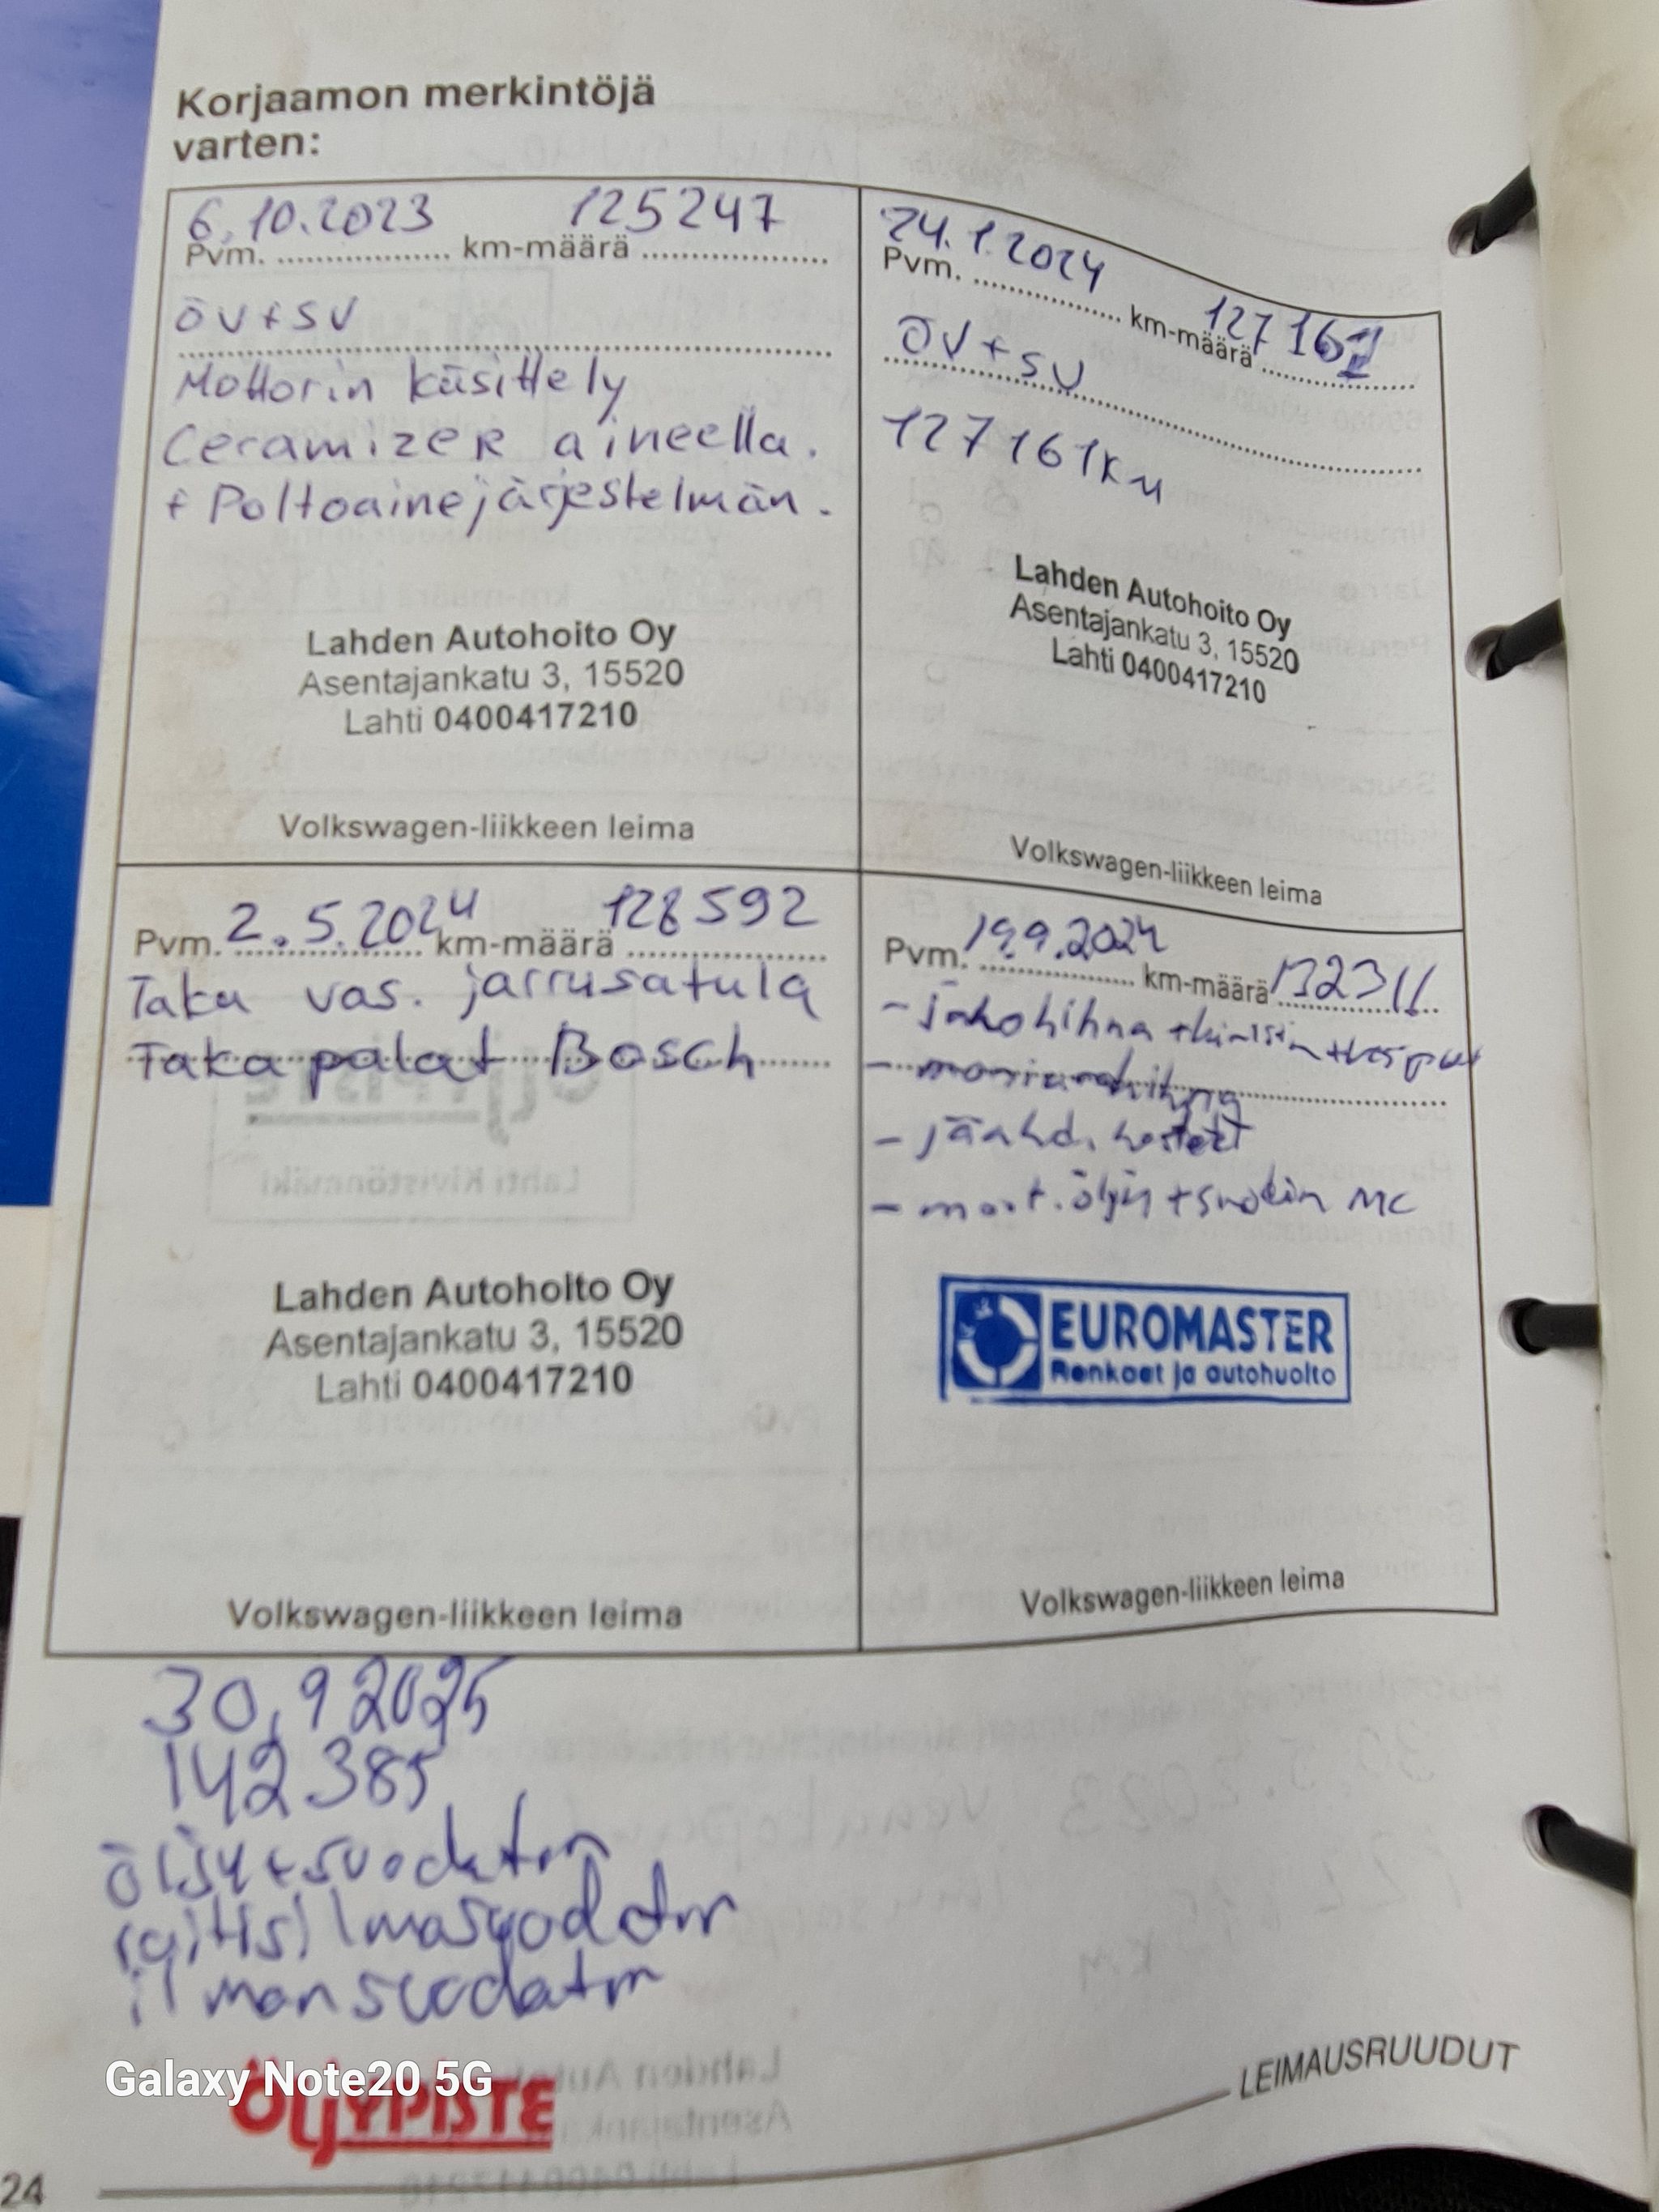 Korjaamon merkintöjä
varten:
6.10.2023 125247
Pvm. .................. km-määrä ..................
ÖV+SV
Mottorin käsittely
Ceramizer aineella.
+ Poltoainejärjestelmän.
Lahden Autohoito Oy
Asentajankatu 3, 15520
Lahti 0400417210
Volkswagen-liikkeen leima
24.1.2024
Pvm. .................. km-määrä ..................
127161
ÖV+SV
127161km
Lahden Autohoito Oy
Asentajankatu 3, 15520
Lahti 0400417210
Volkswagen-liikkeen leima
Pvm. 2.5.2024 km-määrä 128592
Taka vas. jarrusatula
Taka palat Bosch
Lahden Autohoito Oy
Asentajankatu 3, 15520
Lahti 0400417210
Volkswagen-liikkeen leima
Pvm. 19.9.2024 km-määrä 132311
- jakohihna
- moniurahihna
- jäähd. nesteet
- moot. öljy +
EUROMASTER
Renkaat ja autohuolto
Volkswagen-liikkeen leima
30.9 2025
142385
öljy + suodatin
ilmansuodatin
ÖljYPISTE
Galaxy Note20 5G
LEIMAUSRUUDUT
24